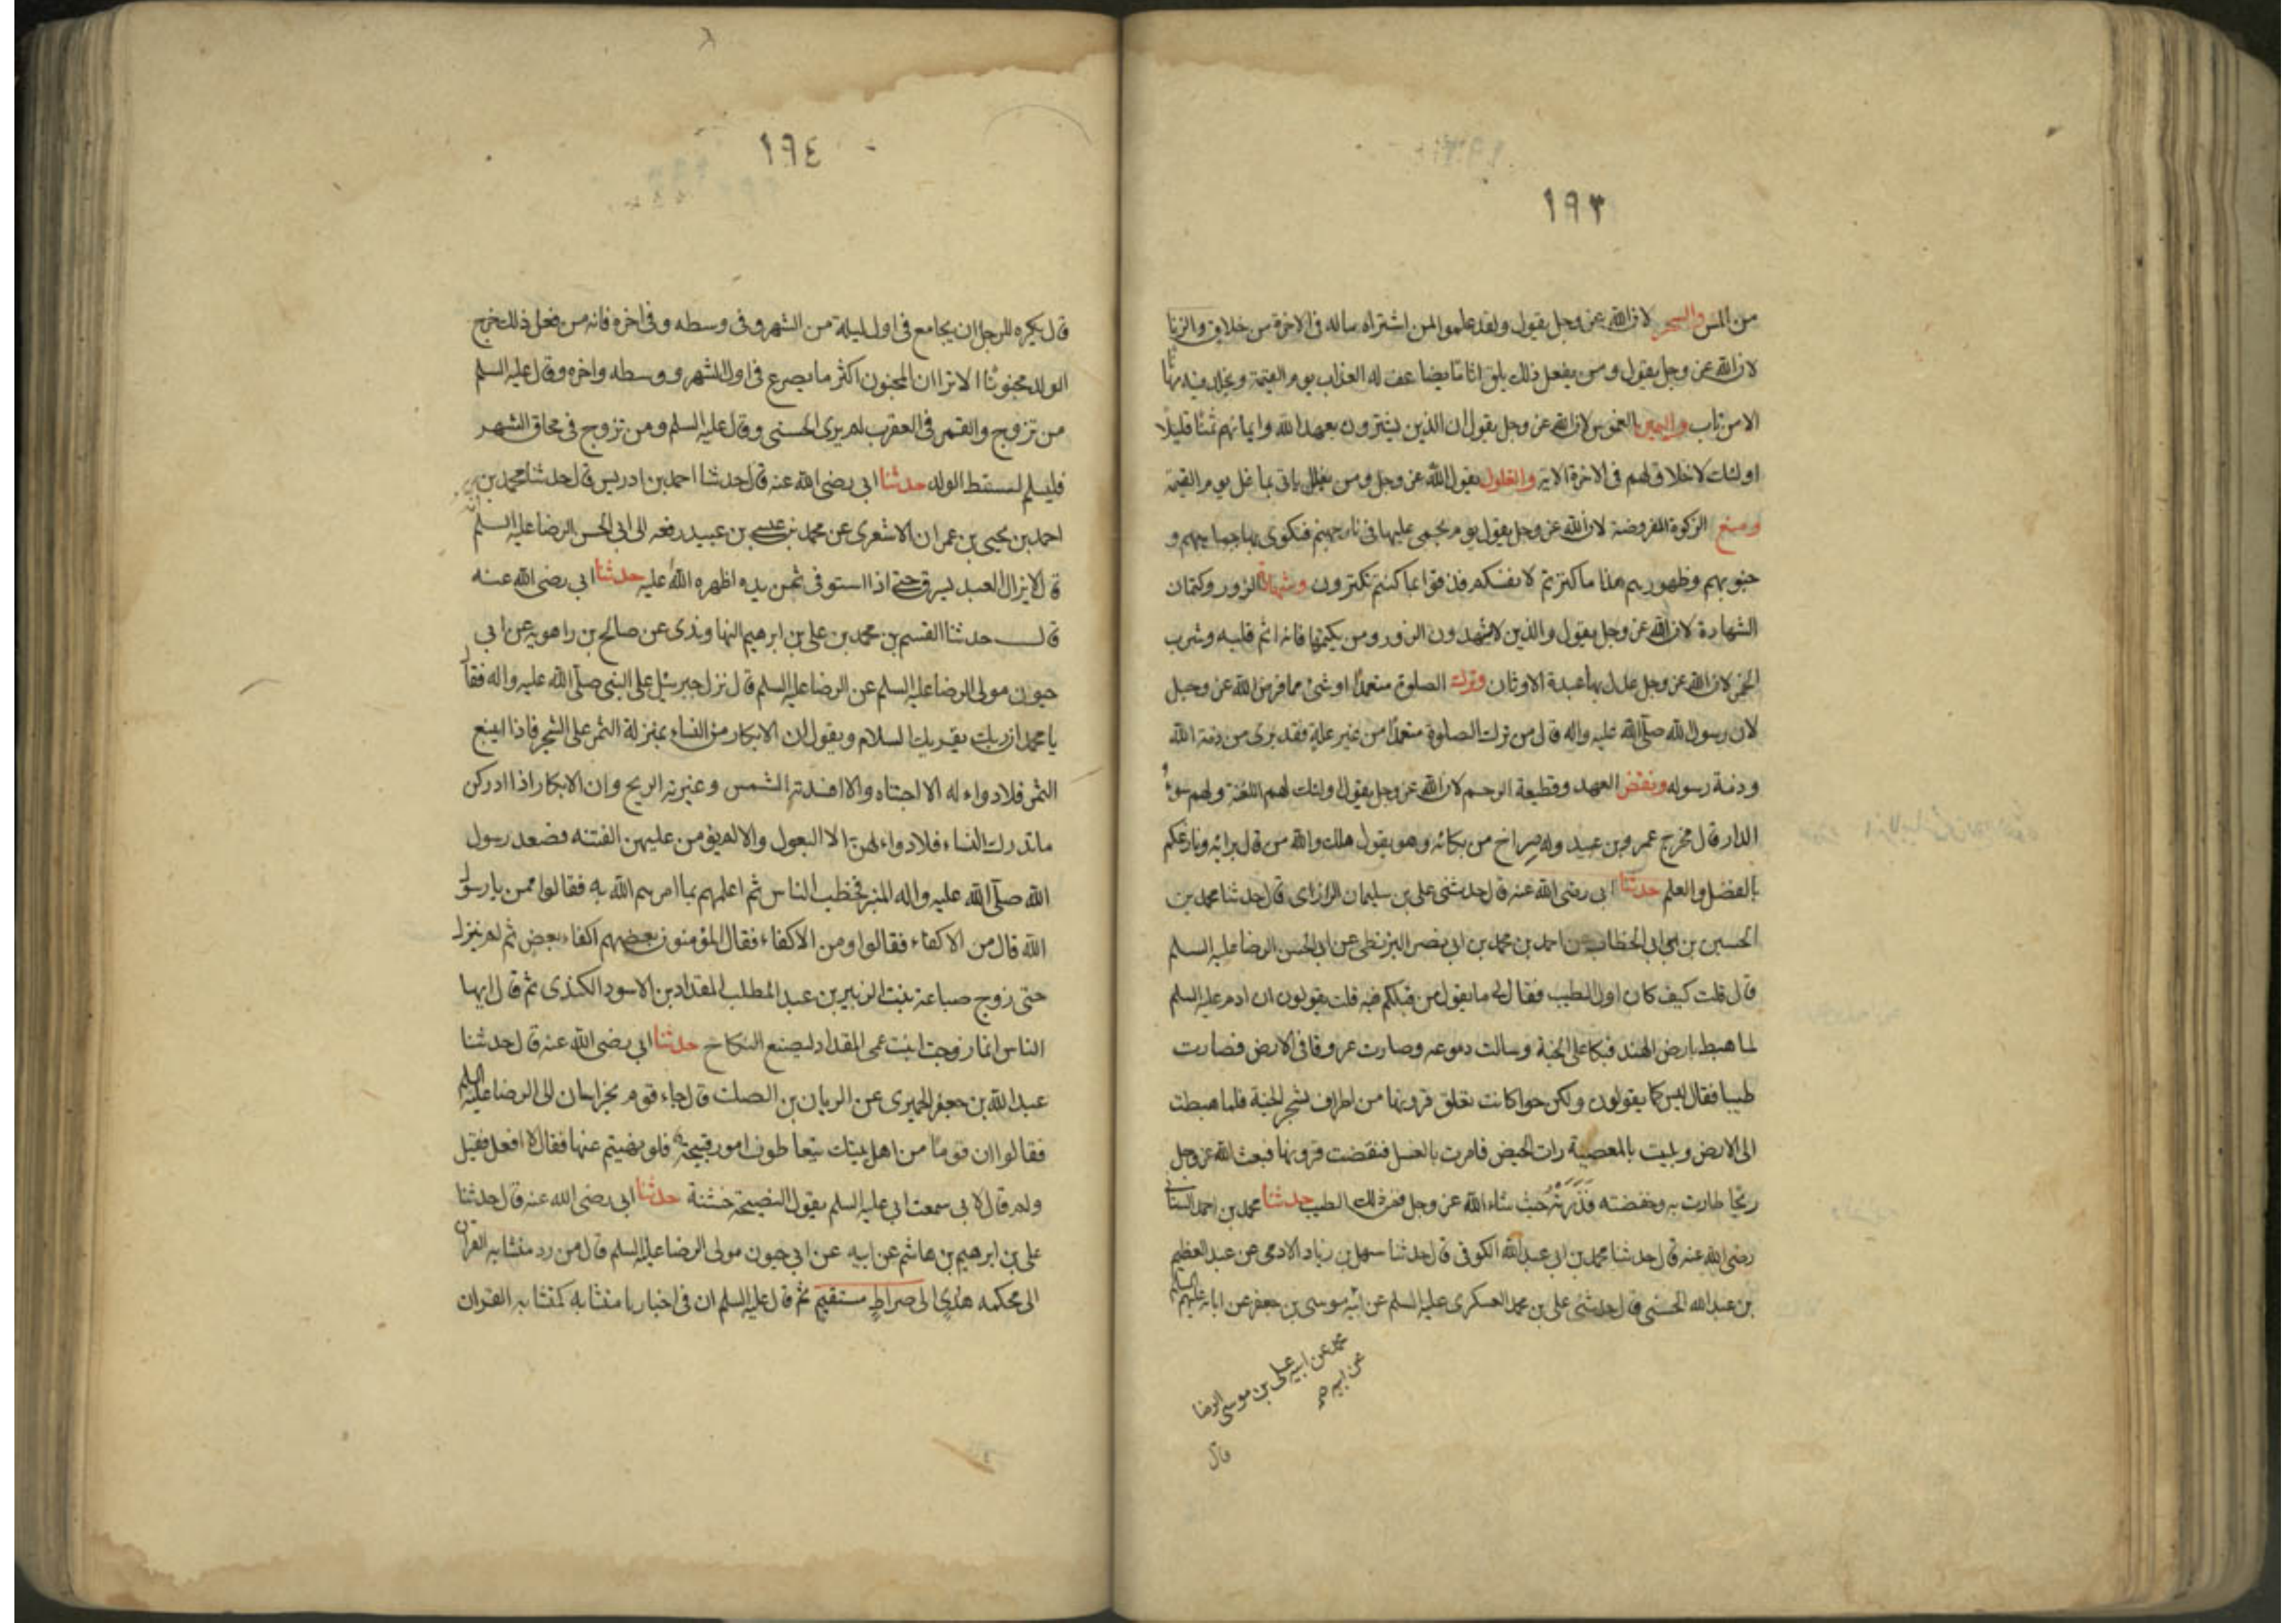 ١٩٣
من المس والسحر لان الله عز وجل يقول ولقد علموا لمن اشتراه ماله فى الاخرة من خلاق والزنا
لان الله عز وجل يقول ومن يفعل ذلك يلق اثاما يضاعف له العذاب يوم القيمة ويخلد فيه مهانا
الا من تاب واليمين الغموس لان الله عز وجل يقول ان الذين يشترون بعهد الله وايمانهم ثمنا قليلا
اولئك لا خلاق لهم فى الاخرة الاية والغلول يقول الله عز وجل ومن يغلل يات بما غل يوم القيمة
ومنع الزكوة المفروضة لان الله عز وجل يقول يوم يحمى عليها فى نار جهنم فتكوى بها جباههم و
جنوبهم وظهورهم هذا ما كنزتم لانفسكم فذوقوا ما كنتم تكنزون وشهادة الزور وكتمان
الشهادة لان الله عز وجل يقول والذين لا يشهدون الزور ومن يكتمها فانه اثم قلبه وشرب
الخمر لان الله عز وجل عدل بها عبدة الاوثان وترك الصلوة متعمدا او شئ مما فرض الله عز وجل
لان رسول الله صلى الله عليه واله قال من ترك الصلوة متعمدا من غير علة فقد برى من ذمة الله
وذمة رسوله ونقض العهد وقطيعة الرحم لان الله عز وجل يقول اولئك لهم اللعنة ولهم سوء
الدار قال فخرج عمرو بن عبيد وله صراخ من بكائه وهو يقول هلك والله من قال برايه ونازعكم
بالفضل والعلم حدثنا ابى رضى الله عنه قال حدثنى على بن سليمان الرازى قال حدثنا محمد بن
الحسين بن ابى الخطاب عن احمد بن محمد بن ابى نصر البزنطى عن ابى الحسن الرضا عليه السلم
قال قلت كيف كان اول الطيب فقال لى ما يقول من قبلكم فيه قلت يقولون ان ادم عليه السلم
لما هبط بارض الهند فبكا على الجنة وسالت دموعه وصارت عروقا فى الارض فصارت
طيبا فقال ليس كما يقولون ولكن حوا كانت تغلق قرونها من اطراف شجر الجنة فلما هبطت
الى الارض وبليت بالمعصية رات الحيض فامرت بالغسل فنقضت قرونها فبعث الله عز وجل
ريحا طارت به وخفضته فَذَرَتْهُ حيث شاء الله عز وجل فمن ذلك الطيب حدثنا محمد بن احمد السنانى
رضى الله عنه قال حدثنا محمد بن ابى عبد الله الكوفى قال حدثنا سهل بن زياد الادمى عن عبد العظيم
بن عبد الله الحسنى قال حدثنى على بن محمد العسكرى عليه السلم عن ابيه موسى بن جعفر عن ابائه عليهم السلم
محمد عن ابيه على بن موسى الرضا
عن ابيه
قال
١٩٤
قال يكره للرجل ان يجامع فى اول ليلة من الشهر وفى وسطه وفى اخره فانه من فعل ذلك خرج
الولد مجنونًا الا ترا ان المجنون اكثر ما يصرع فى اول الشهر ووسطه واخره وقال عليه السلم
من تزوج والقمر فى العقرب لم يرى الحسنى وقال عليه السلم ومن تزوج فى محاق الشهر
فليسلم لسقط الولد حدثنا ابى رضى الله عنه قال حدثنا احمد بن ادريس قال حدثنا محمد بن
احمد بن يحيى بن عمران الاشعرى عن محمد بن عيسى بن عبيد رفعه الى ابى الحسن الرضا عليه السلم
قال لا يزال العبد يسرق حتى اذا استوفى ثمن يده اظهره الله عليه حدثنا ابى رضى الله عنه
قال حدثنا القسم بن محمد بن على بن ابرهيم النهاوندى عن صالح بن راهويه عن ابى
حيون مولى الرضا عليه السلم عن الرضا عليه السلم قال نزل جبرئيل على النبى صلى الله عليه واله فقال
يا محمد ان ربك يقريك السلام ويقول ان الابكار من النساء بمنزلة الثمر على الشجر فاذا اينع
الثمر فلا دواء له الا اجتناه والا افسدته الشمس وغيرته الريح وان الابكار اذا ادركن
ما تدرك النساء فلا دواء لهن الا البعول والا لم يؤمن عليهن الفتنه فصعد رسول
الله صلى الله عليه واله المنبر فخطب الناس ثم اعلمهم بما امرهم الله به فقالوا ممن يا رسول
الله قال من الاكفاء فقالوا ومن الاكفاء فقال المؤمنون بعضهم اكفاء بعض ثم لم ينزل
حتى زوج ضباعة بنت الزبير بن عبد المطلب المقداد بن الاسود الكندى ثم قال ايها
الناس انما زوجت ابنت عمى المقداد ليصنع النكاح حدثنا ابى رضى الله عنه قال حدثنا
عبد الله بن جعفر الحميرى عن الريان بن الصلت قال جاء قوم بخراسان الى الرضا عليه السلم
فقالوا ان قوما من اهل بيتك يتعاطون امور قبيحة فلو نهيتهم عنها فقال لا افعل فقيل
ولم قال لانى سمعت ابى عليه السلم يقول النصيحة خشنة حدثنا ابى رضى الله عنه قال حدثنا
على بن ابرهيم بن هاشم عن ابيه عن ابى حيون مولى الرضا عليه السلم قال من رد متشابه القران
الى محكمه هدى الى صراط مستقيم ثم قال عليه السلم ان فى اخبارنا متشابه كمتشابه القران